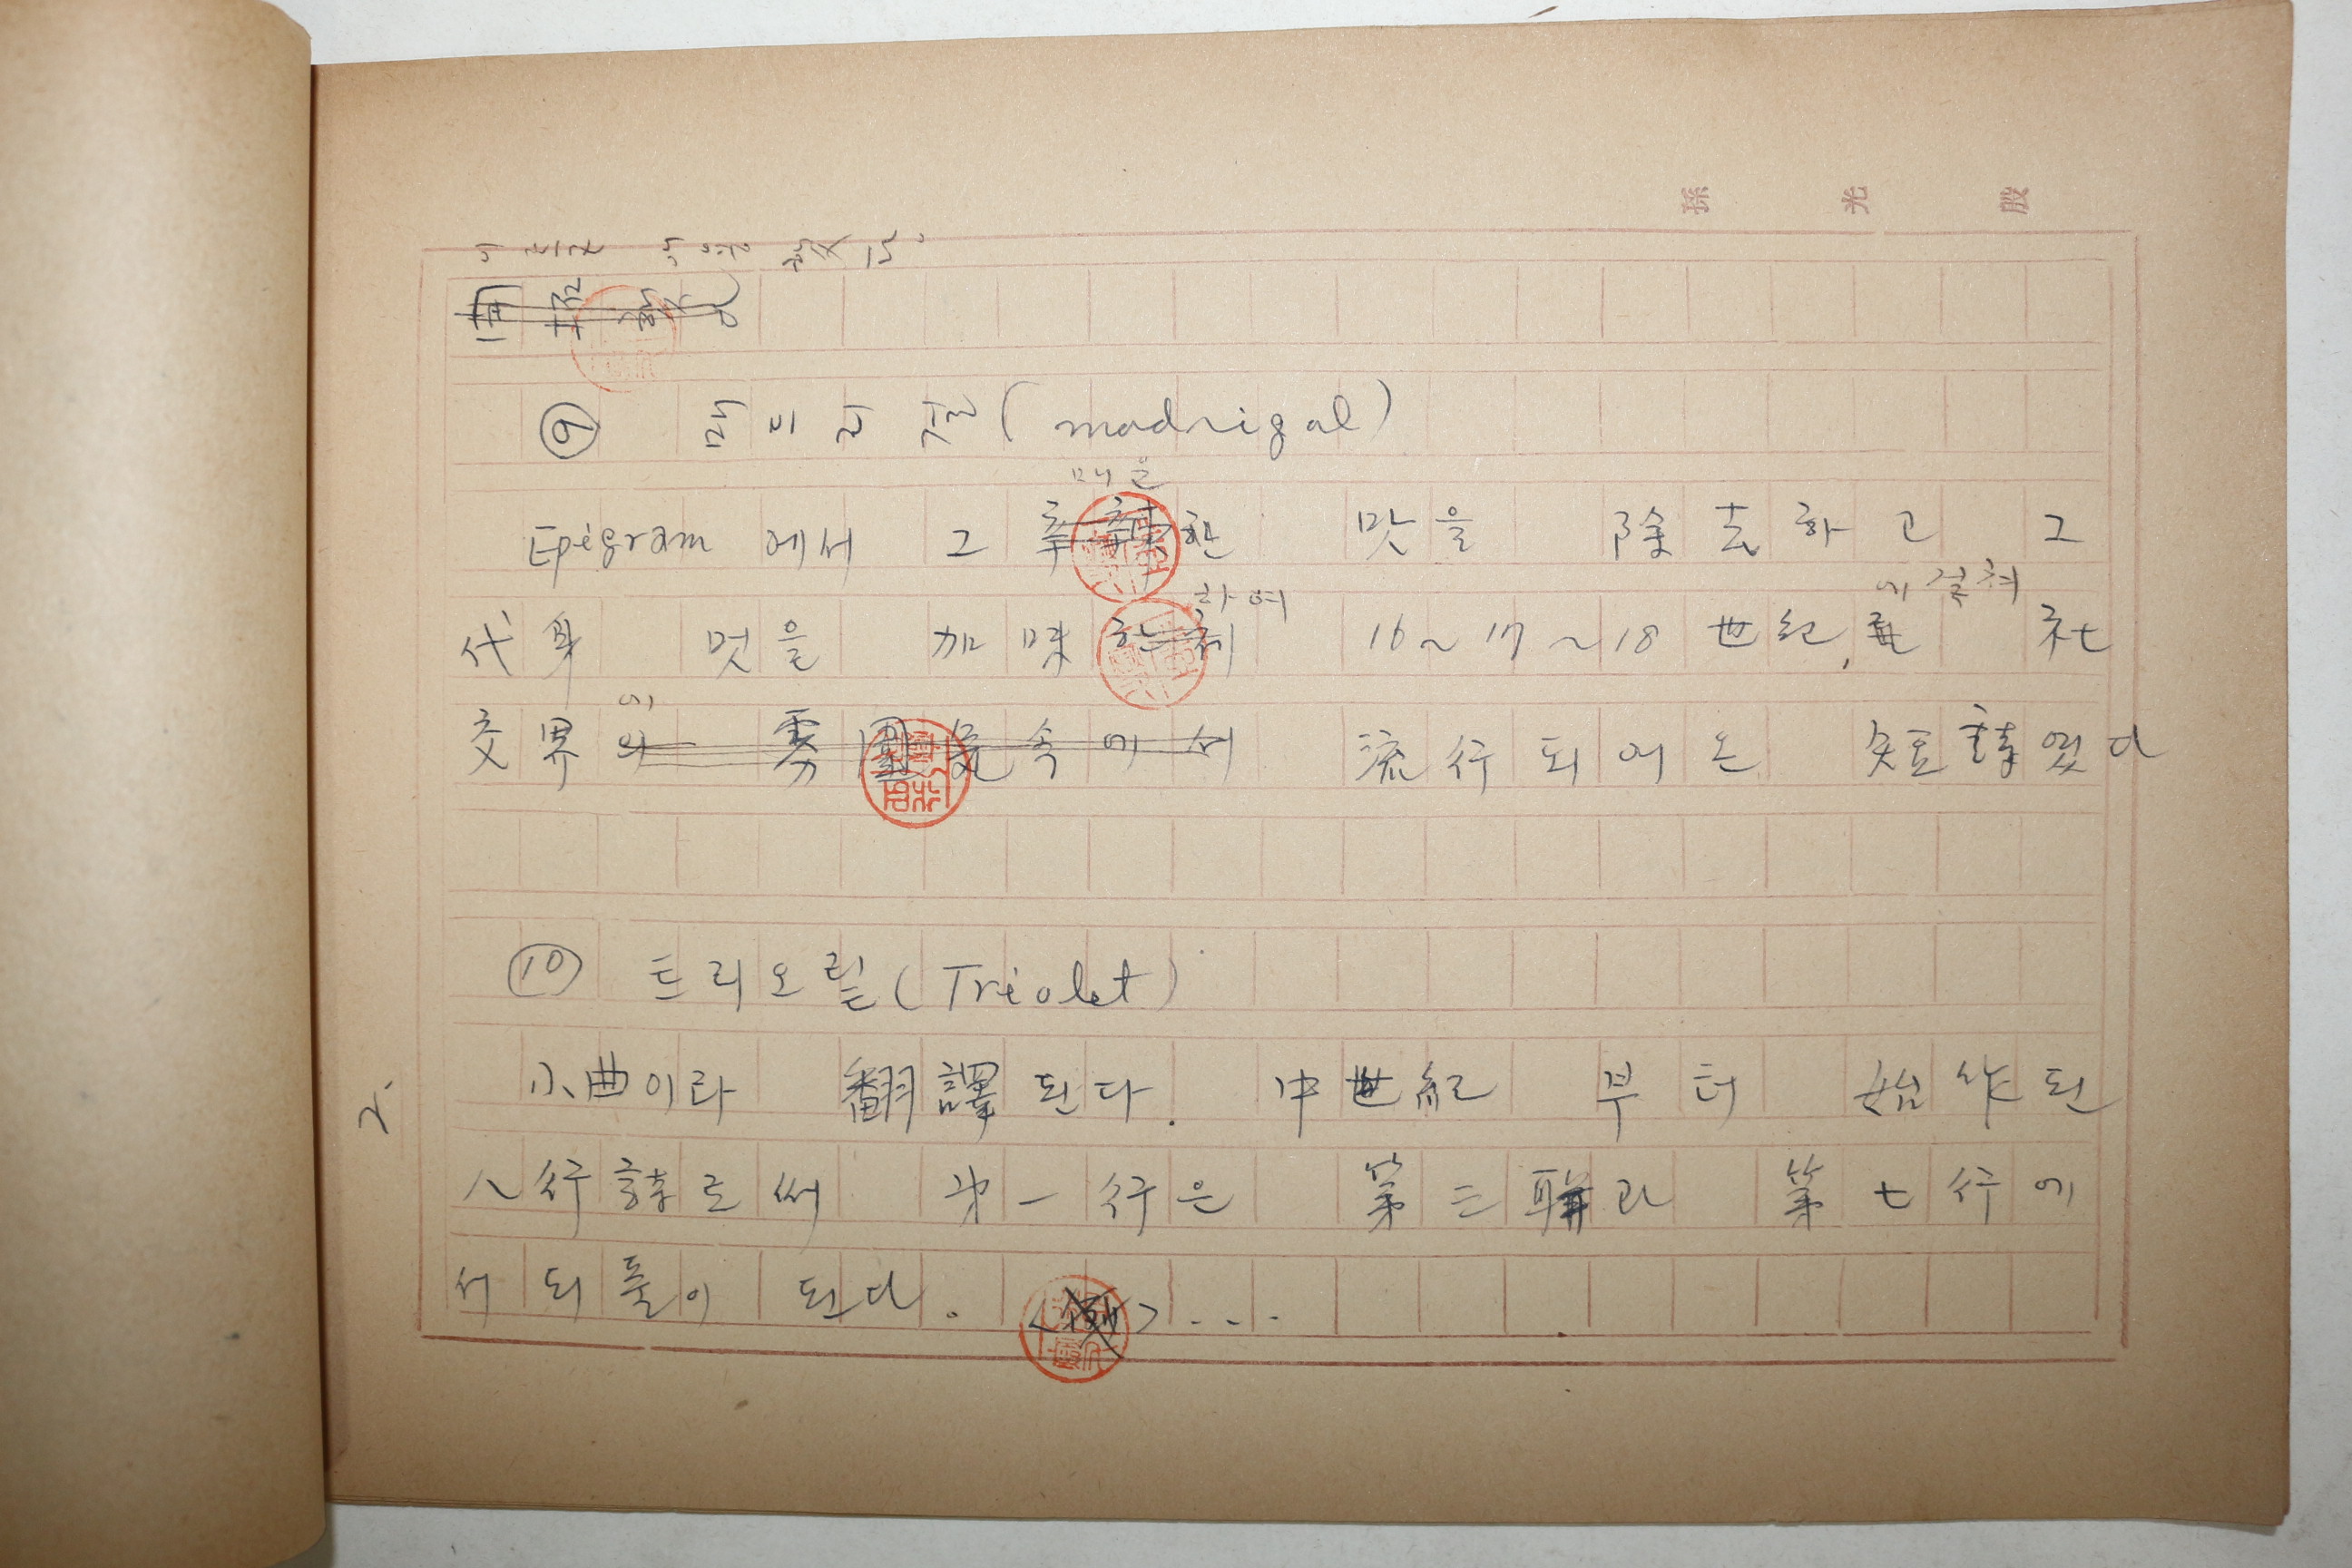 孫光殷
⑨ 매드리갈(madrigal)
매운
Epigram에서 그 辛辣한 맛을 除去하고 그
하여 에 걸쳐
代身 멋을 加味한 16~17~18世紀, 社
에
交界의 雰圍氣속에서 流行되어온 短詩였다
⑩ 트리오렡(Triolet)
小曲이라 翻譯된다. 中世紀 부터 始作된
八行詩로써 第一行은 第三聯과 第七行에
서 되풀이 된다.
2.